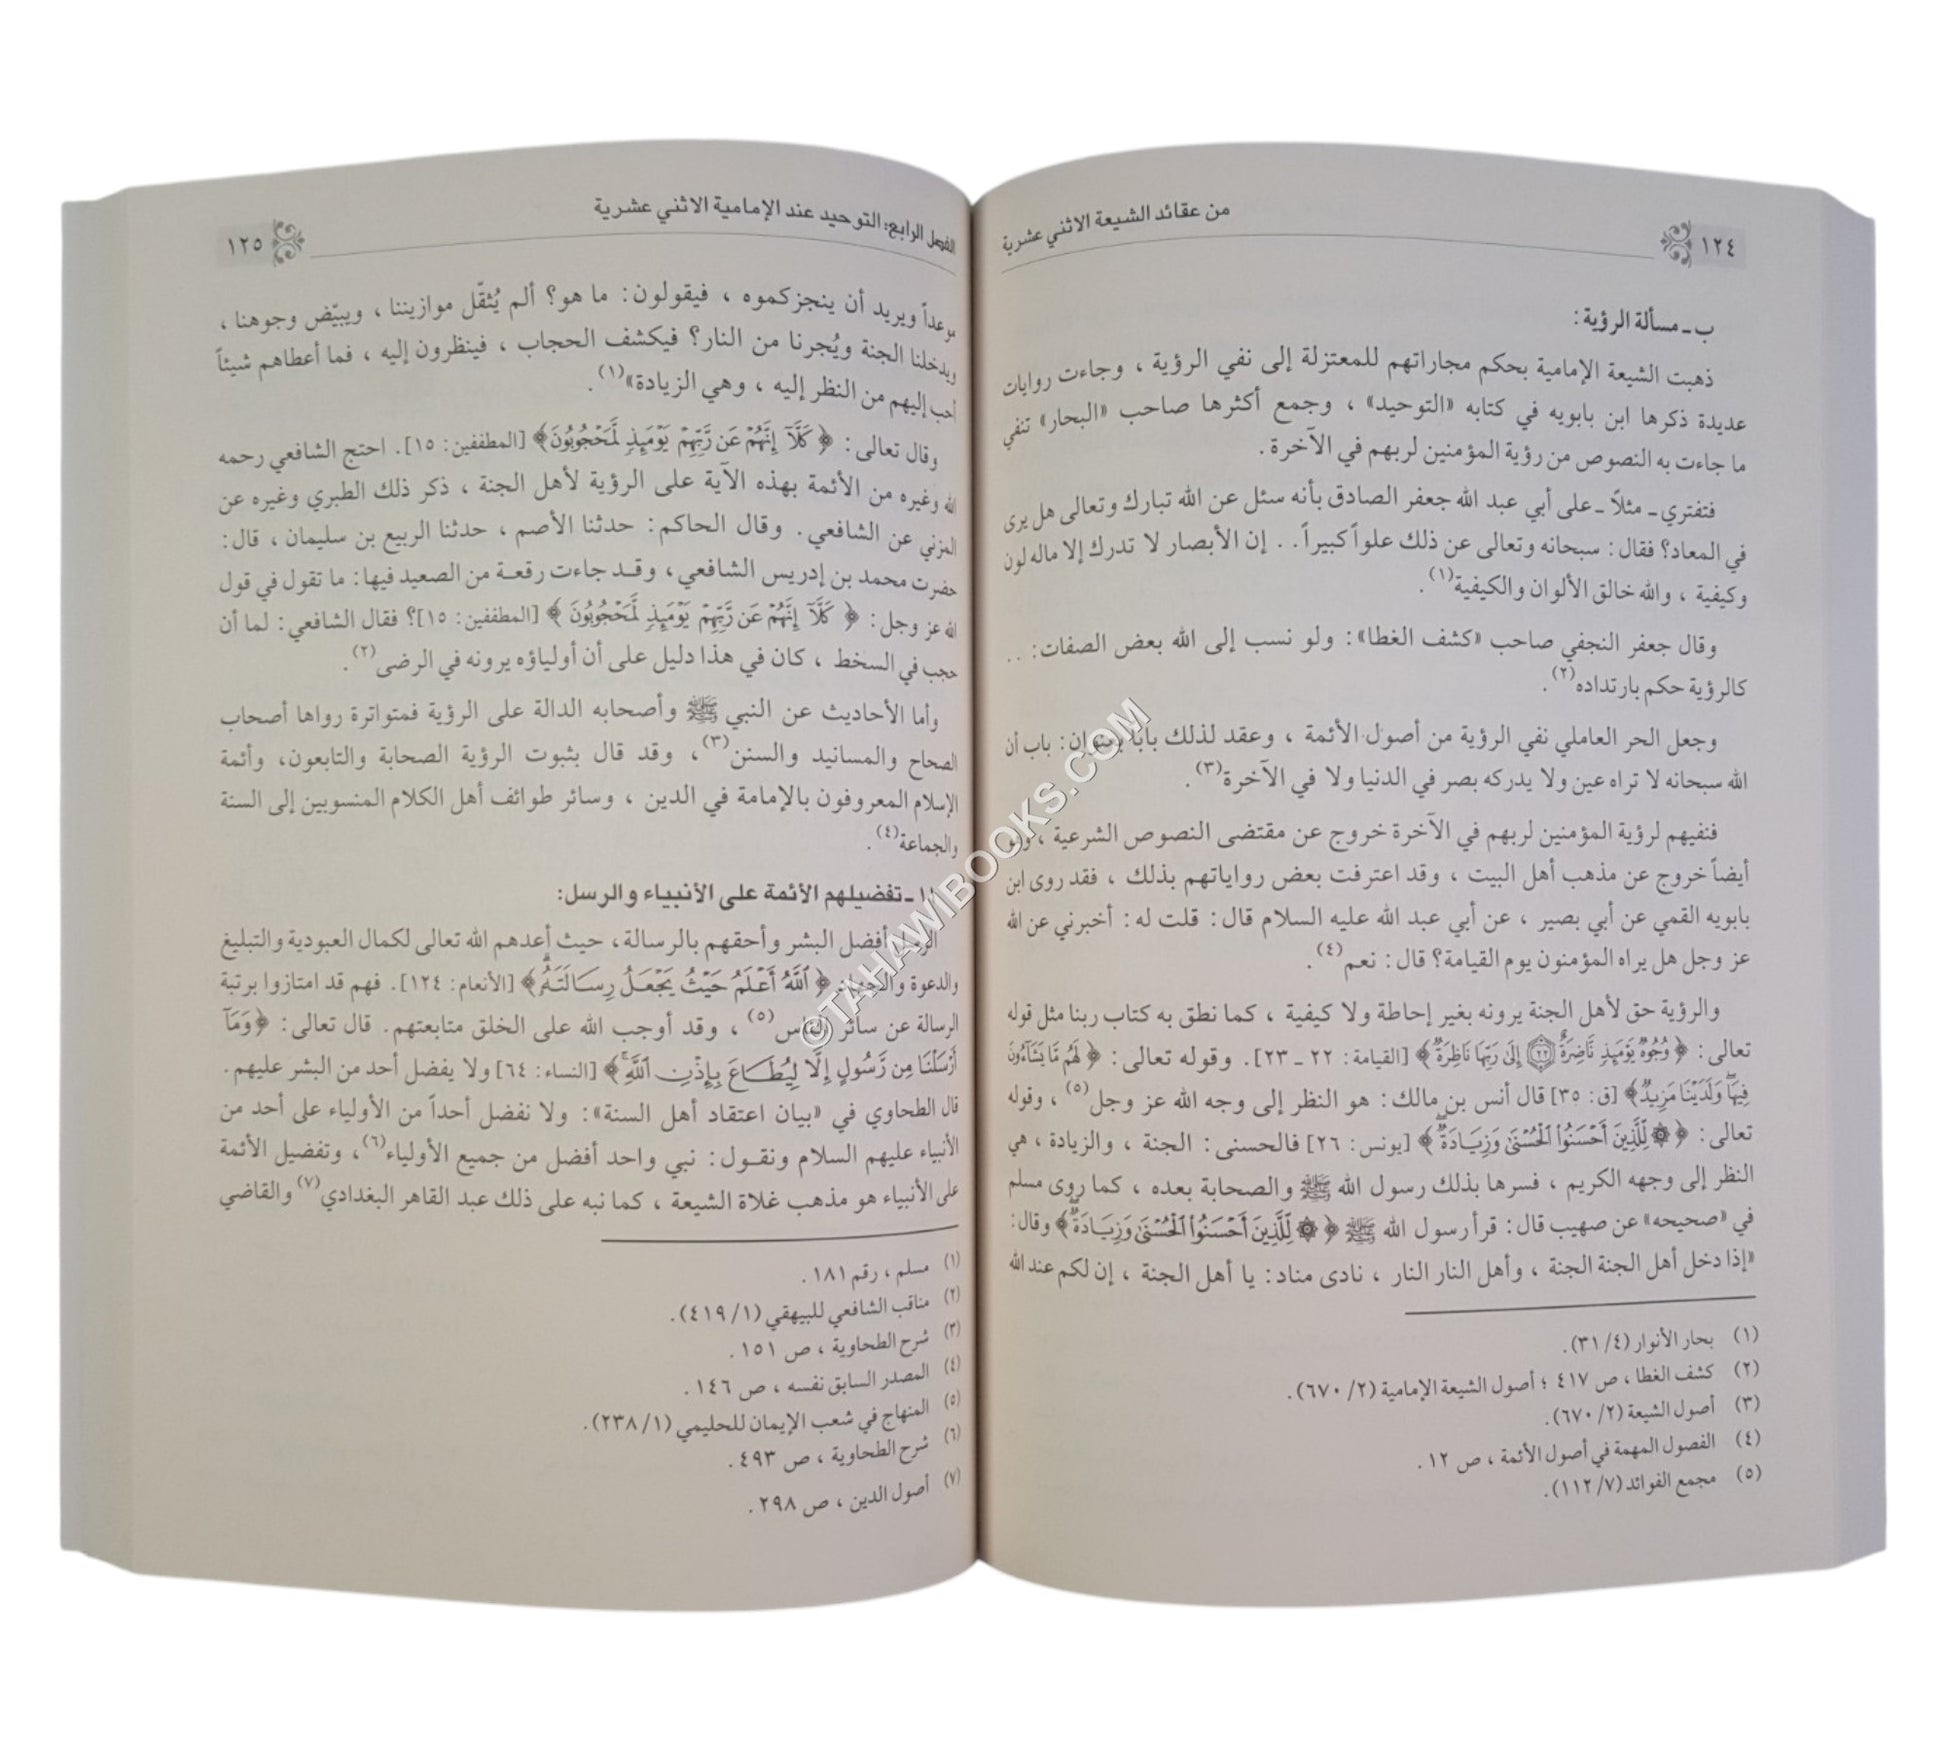 ١٢٤
من عقائد الشيعة الاثني عشرية
ب ـ مسألة الرؤية:
ذهبت الشيعة الإمامية بحكم مجاراتهم للمعتزلة إلى نفي الرؤية ، وجاءت روايات
عديدة ذكرها ابن بابويه في كتابه «التوحيد» ، وجمع أكثرها صاحب «البحار» تنفي
ما جاءت به النصوص من رؤية المؤمنين لربهم في الآخرة .
فتفتري ـ مثلاً ـ على أبي عبد الله جعفر الصادق بأنه سئل عن الله تبارك وتعالى هل يرى
في المعاد؟ فقال: سبحانه وتعالى عن ذلك علواً كبيراً . . إن الأبصار لا تدرك إلا ماله لون
وكيفية ، والله خالق الألوان والكيفية(١) .
وقال جعفر النجفي صاحب «كشف الغطا»: ولو نسب إلى الله بعض الصفات: . .
كالرؤية حكم بارتداده(٢) .
وجعل الحر العاملي نفي الرؤية من أصول الأئمة ، وعقد لذلك باباً بعنوان: باب أن
الله سبحانه لا تراه عين ولا يدركه بصر في الدنيا ولا في الآخرة(٣) .
فنفيهم لرؤية المؤمنين لربهم في الآخرة خروج عن مقتضى النصوص الشرعية ، وهو
أيضاً خروج عن مذهب أهل البيت ، وقد اعترفت بعض رواياتهم بذلك ، فقد روى ابن
بابويه القمي عن أبي بصير ، عن أبي عبد الله عليه السلام قال: قلت له: أخبرني عن الله
عز وجل هل يراه المؤمنون يوم القيامة؟ قال: نعم(٤) .
والرؤية حق لأهل الجنة يرونه بغير إحاطة ولا كيفية ، كما نطق به كتاب ربنا مثل قوله
تعالى: ﴿ وُجُوهٌ يَوْمَئِذٍ نَّاضِرَةٌ ٢٢ إِلَى رَبِّهَا نَاظِرَةٌ ﴾ [القيامة: ٢٢ ـ ٢٣]. وقوله تعالى: ﴿ لَهُم مَّا يَشَاءُونَ
فِيهَا وَلَدَيْنَا مَزِيدٌ ﴾ [ق: ٣٥] قال أنس بن مالك: هو النظر إلى وجه الله عز وجل(٥) ، وقوله
تعالى: ﴿ ۞ لِّلَّذِينَ أَحْسَنُوا۟ الْحُسْنَىٰ وَزِيَادَةٌ ﴾ [يونس: ٢٦] فالحسنى: الجنة ، والزيادة ، هي
النظر إلى وجهه الكريم ، فسرها بذلك رسول الله ﷺ والصحابة بعده ، كما روى مسلم
في «صحيحه» عن صهيب قال: قرأ رسول الله ﷺ ﴿ ۞ لِّلَّذِينَ أَحْسَنُوا۟ الْحُسْنَىٰ وَزِيَادَةٌ ﴾ وقال:
«إذا دخل أهل الجنة الجنة ، وأهل النار النار ، نادى مناد: يا أهل الجنة ، إن لكم عند الله
(١) بحار الأنوار (٤/ ٣١).
(٢) كشف الغطا ، ص ٤١٧ ؛ أصول الشيعة الإمامية (٢/ ٦٧٠).
(٣) أصول الشيعة (٢/ ٦٧٠).
(٤) الفصول المهمة في أصول الأئمة ، ص ١٢ .
(٥) مجمع الفوائد (٧/ ١١٢).
الفصل الرابع: التوحيد عند الإمامية الاثني عشرية
١٢٥
موعداً ويريد أن ينجزكموه ، فيقولون: ما هو؟ ألم يُثقّل موازيننا ، ويبيّض وجوهنا ،
ويدخلنا الجنة ويُجرنا من النار؟ فيكشف الحجاب ، فينظرون إليه ، فما أعطاهم شيئاً
أحب إليهم من النظر إليه ، وهي الزيادة»(١) .
وقال تعالى: ﴿ كَلَّآ إِنَّهُمْ عَن رَّبِّهِمْ يَوْمَئِذٍ لَّمَحْجُوبُونَ ﴾ [المطففين: ١٥]. احتج الشافعي رحمه
الله وغيره من الأئمة بهذه الآية على الرؤية لأهل الجنة ، ذكر ذلك الطبري وغيره عن
المزني عن الشافعي . وقال الحاكم: حدثنا الأصم ، حدثنا الربيع بن سليمان ، قال:
حضرت محمد بن إدريس الشافعي ، وقد جاءت رقعة من الصعيد فيها: ما تقول في قول
الله عز وجل: ﴿ كَلَّآ إِنَّهُمْ عَن رَّبِّهِمْ يَوْمَئِذٍ لَّمَحْجُوبُونَ ﴾ [المطففين: ١٥]؟ فقال الشافعي: لما أن
حجب في السخط ، كان في هذا دليل على أن أولياؤه يرونه في الرضى(٢) .
وأما الأحاديث عن النبي ﷺ وأصحابه الدالة على الرؤية فمتواترة رواها أصحاب
الصحاح والمسانيد والسنن(٣) ، وقد قال بثبوت الرؤية الصحابة والتابعون، وأئمة
الإسلام المعروفون بالإمامة في الدين ، وسائر طوائف أهل الكلام المنسوبين إلى السنة
والجماعة(٤) .
ـ تفضيلهم الأئمة على الأنبياء والرسل:
أفضل البشر وأحقهم بالرسالة، حيث أعدهم الله تعالى لكمال العبودية والتبليغ
والدعوة ﴿ ٱللَّهُ أَعْلَمُ حَيْثُ يَجْعَلُ رِسَالَتَهُۥ ﴾ [الأنعام: ١٢٤]. فهم قد امتازوا برتبة
الرسالة عن سائر الناس(٥) ، وقد أوجب الله على الخلق متابعتهم. قال تعالى: ﴿ وَمَآ
أَرْسَلْنَا مِن رَّسُولٍ إِلَّا لِيُطَاعَ بِإِذْنِ ٱللَّهِ ﴾ [النساء: ٦٤] ولا يفضل أحد من البشر عليهم .
قال الطحاوي في «بيان اعتقاد أهل السنة»: ولا نفضل أحداً من الأولياء على أحد من
الأنبياء عليهم السلام ونقول: نبي واحد أفضل من جميع الأولياء(٦) ، وتفضيل الأئمة
على الأنبياء هو مذهب غلاة الشيعة ، كما نبه على ذلك عبد القاهر البغدادي(٧) والقاضي
(١) مسلم ، رقم ١٨١ .
(٢) مناقب الشافعي للبيهقي (١/ ٤١٩).
(٣) شرح الطحاوية ، ص ١٥١ .
(٤) المصدر السابق نفسه ، ص ١٤٦ .
(٥) المنهاج في شعب الإيمان للحليمي (١/ ٢٣٨).
(٦) شرح الطحاوية ، ص ٤٩٣ .
(٧) أصول الدين ، ص ٢٩٨ .
©TAHAWIBOOKS.COM